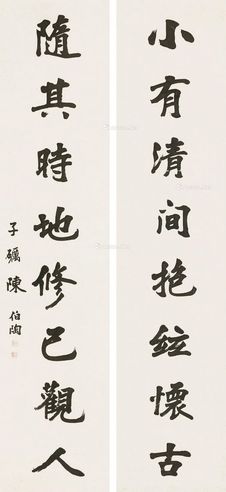 小有清间抱弦懷古
隨其時地修己觀人
子礪陳伯陶